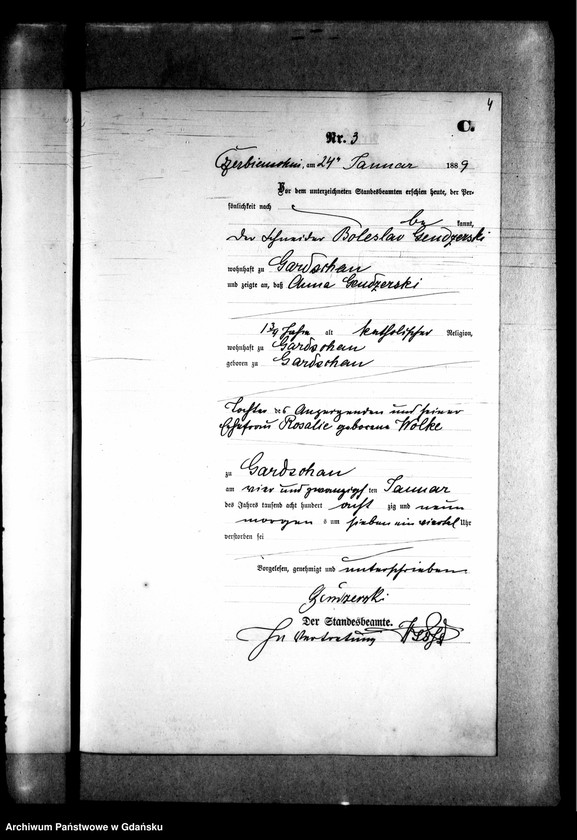 4
C.
Nr. 3
Czerbienschin, am 24n Januar 1889
Vor dem unterzeichneten Standesbeamten erschien heute, der Per-
sönlichkeit nach
be kannt,
der Schneider Boleslav Gendzerski
wohnhaft zu Gardschau
und zeigte an, daß Anna Gendzerski
Jahre alt katholischer Religion,
wohnhaft zu Gardschau
geboren zu Gardschau
Tochter des Anzeigenden und seiner
Ehefrau Rosalie geborene Wolke
zu Gardschau
am vier und zwanzigst ten Januar
des Jahres tausend acht hundert acht zig und neun
morgen s um sieben ein viertel Uhr
verstorben sei
Vorgelesen, genehmigt und unterschrieben
Der Standesbeamte.
In Vertretung
Archiwum Państwowe w Gdańsku